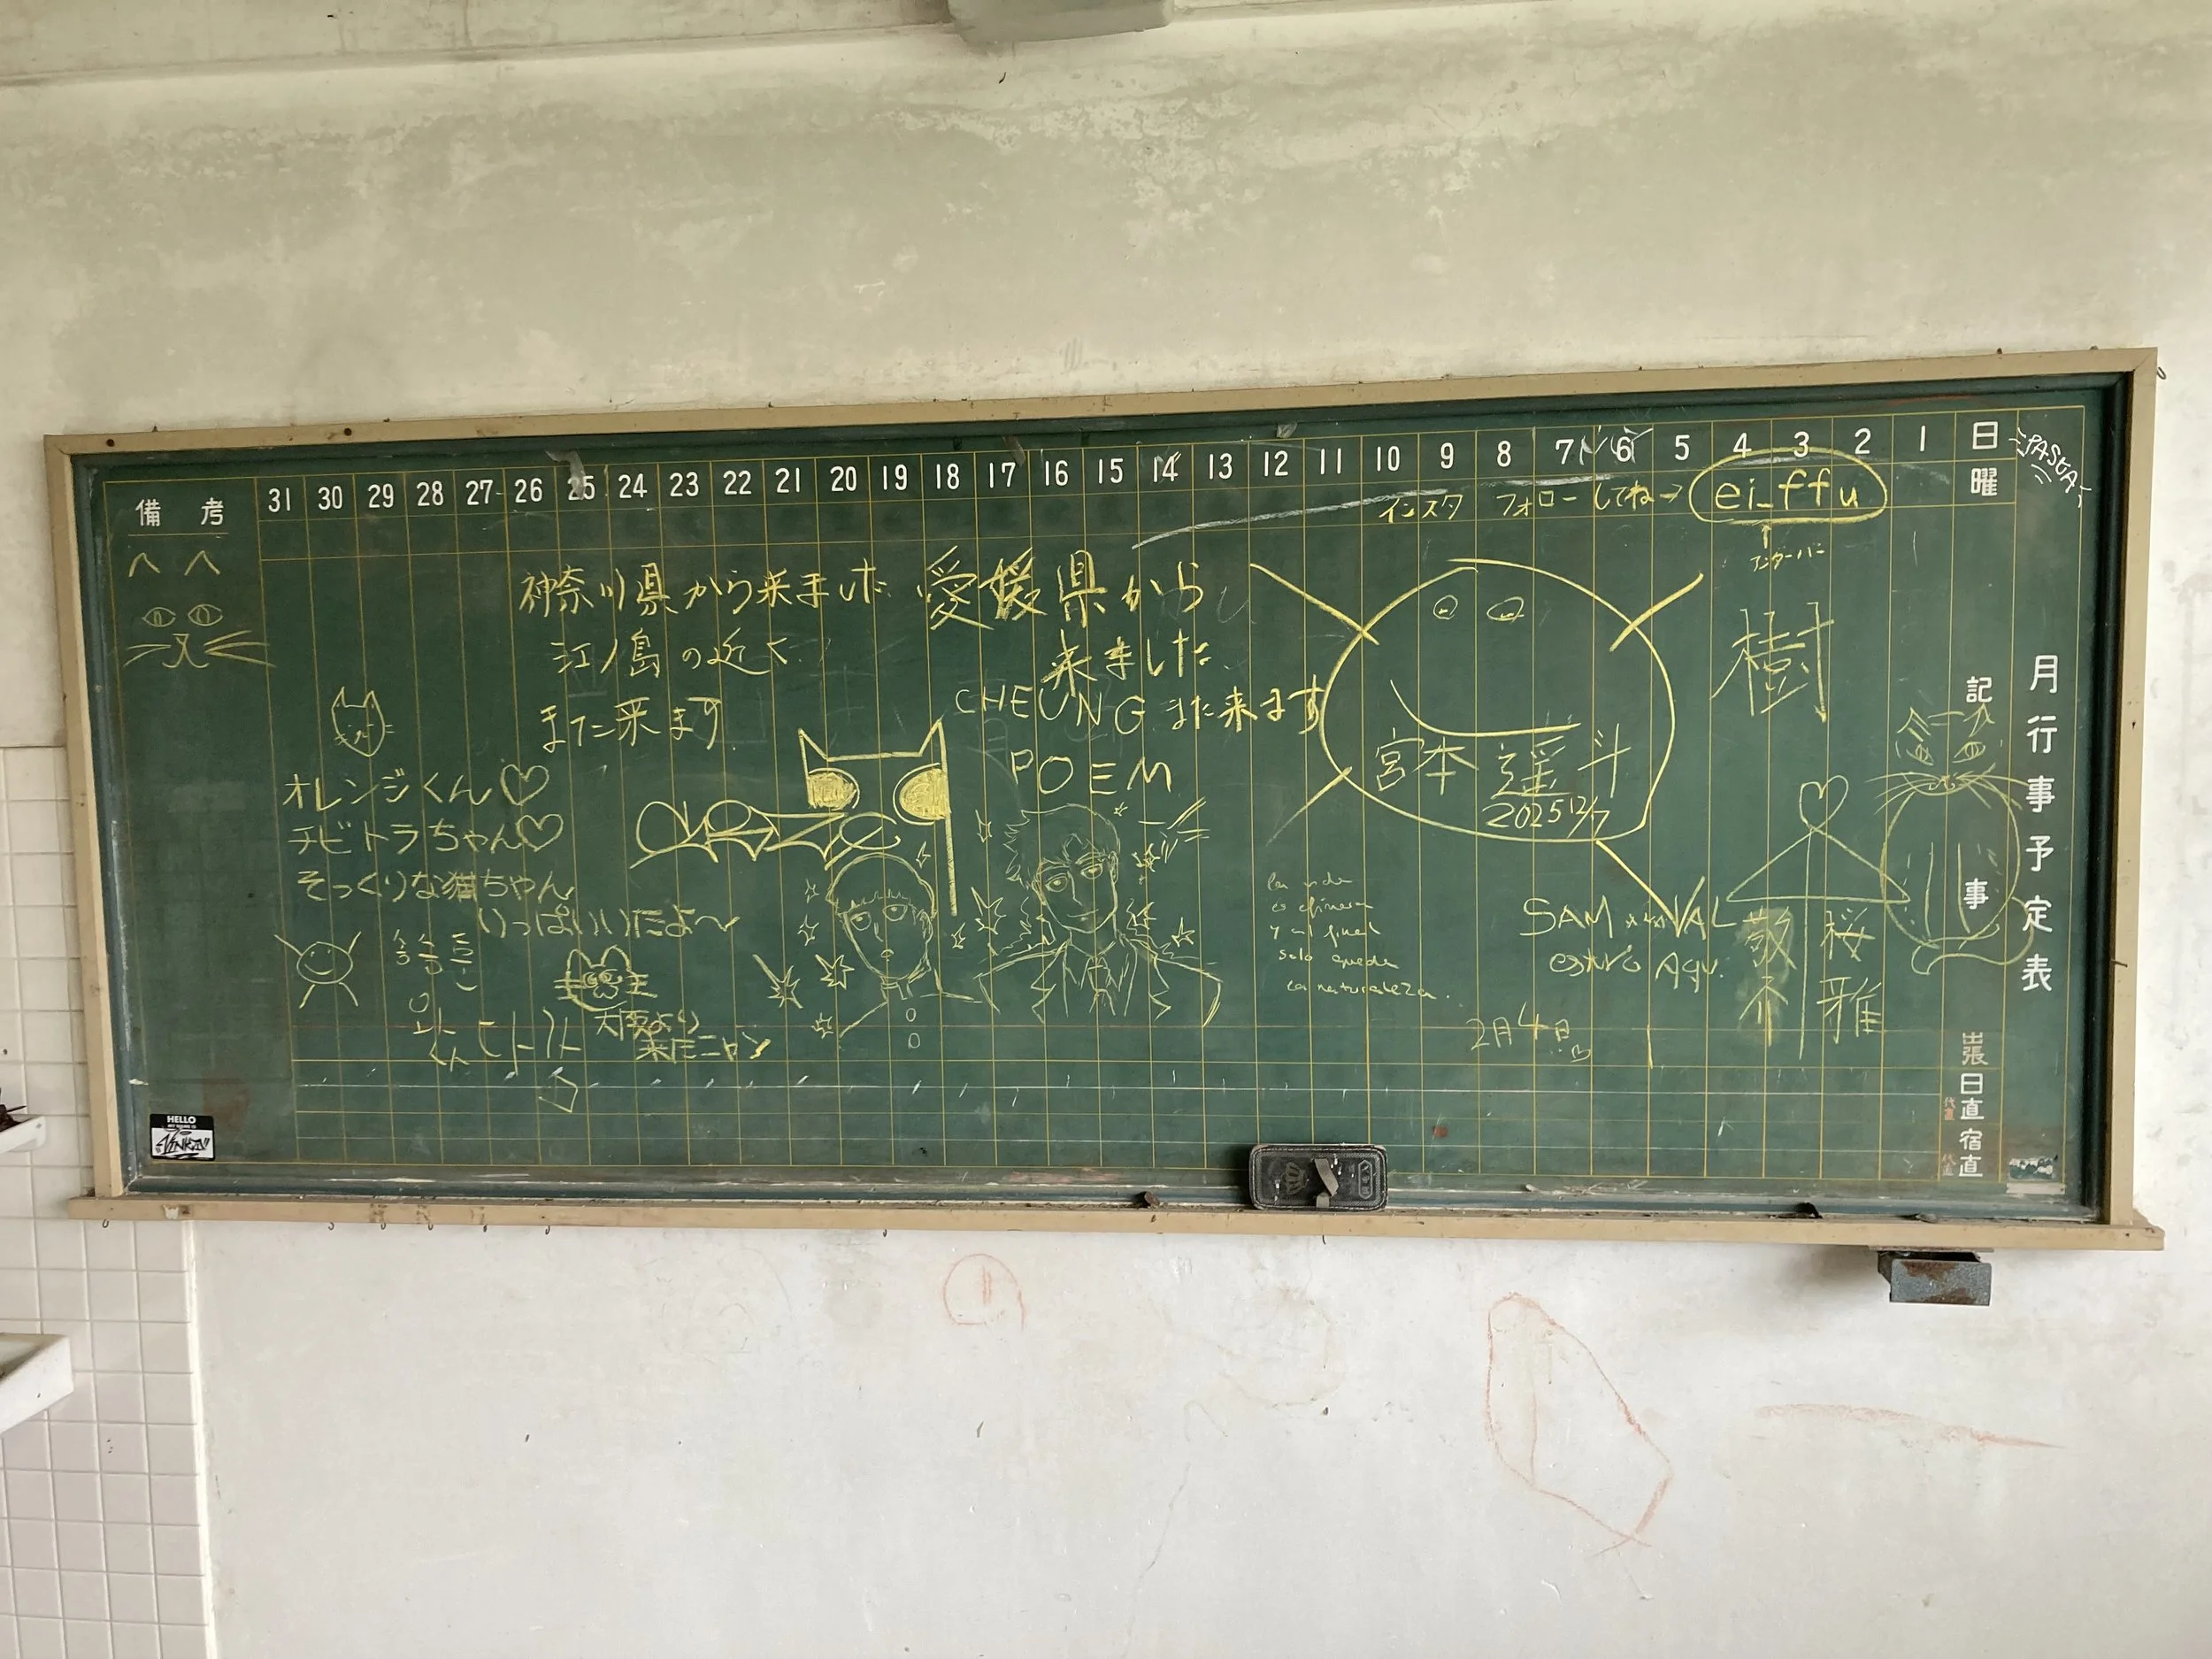 備考 31 30 29 28 27 26 25 24 23 22 21 20 19 18 17 16 15 14 13 12 11 10 9 8 7 6 5 4 3 2 1 日
曜
PASTA
インスタ フォローしてね→ ei_ffu
アンダーバー
月行事予定表
記事
出張
日直
代直
宿直
代直
神奈川県から来ました
江ノ島の近く
また来ます
愛媛県から
来ました
CHEUNG また来ます
POEM
オレンジくん♡
チビトラちゃん♡
そっくりな猫ちゃん
いっぱいいたよ〜
大阪より
来たニャン
宮本 遥斗
2025 12/7
樹
桜雅
SAM VAL
estuvo aquí
2月4日
la vida
es efímera
y al final
solo queda
la naturaleza..
HELLO
MY NAME IS